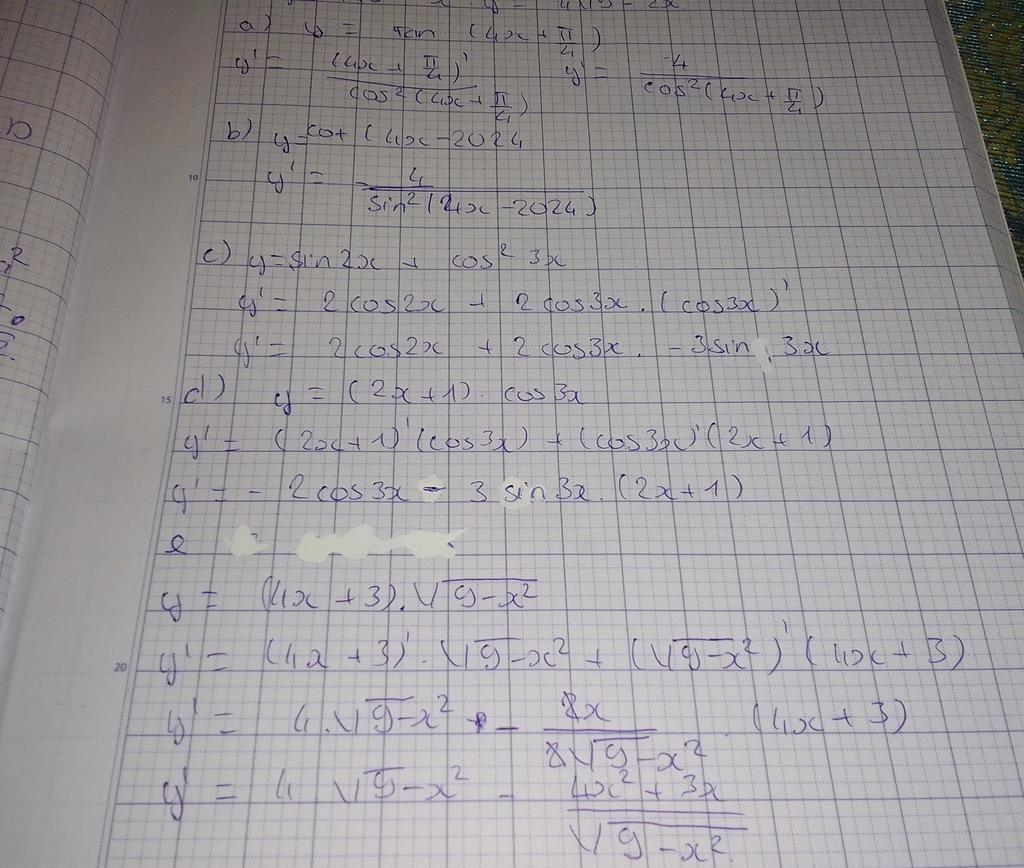 a) y = tan (4x + π/4)
y' = (4x + π/4)' / cos²(4x + π/4) y' = 4 / cos²(4x + π/4)
b) y = cot (4x - 2024
10
y' = - 4 / sin²(4x - 2024)
c) y = sin 2x + cos² 3x
y' = 2 cos 2x + 2 cos 3x . (cos 3x)'
y' = 2 cos 2x + 2 cos 3x . - 3 sin 3x
15
d) y = (2x + 1) . cos 3x
y' = (2x + 1)' (cos 3x) + (cos 3x)' (2x + 1)
y' = - 2 cos 3x - 3 sin 3x . (2x + 1)
e
y = (4x + 3) . √9 - x²
20
y' = (4x + 3)' . √9 - x² + (√9 - x²)' (4x + 3)
y' = 4 . √9 - x² - 2x / 2√9 - x² . (4x + 3)
y' = 4 √9 - x² - 4x² + 3x / √9 - x²